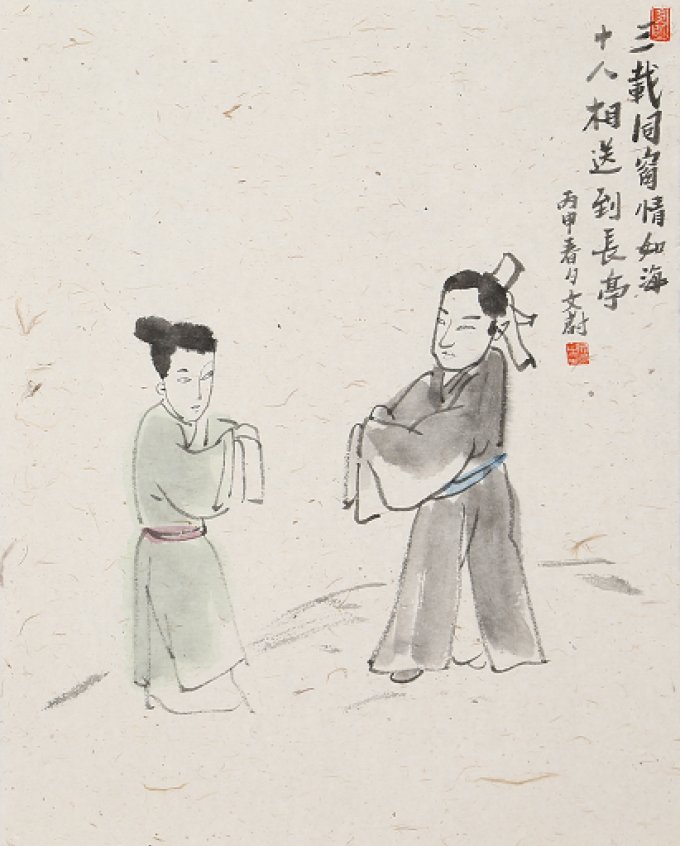 三載同窗情如海
十八相送到長亭
丙申春月文尉